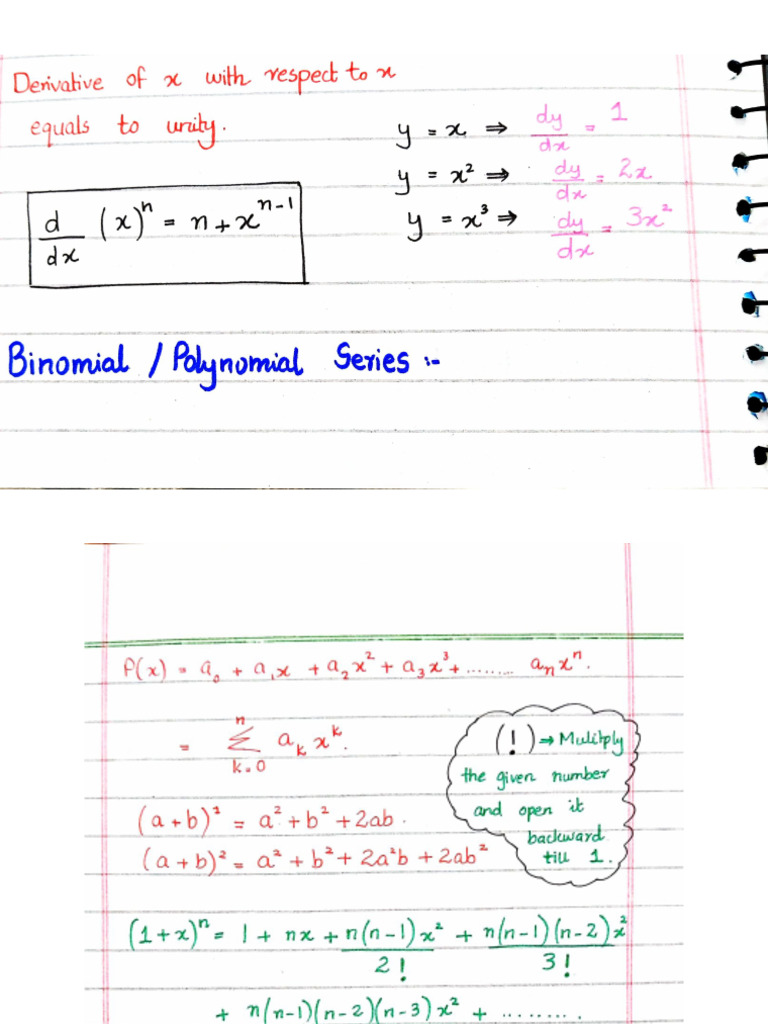 Derivative of x with respect to x
equals to unity.
y = x ⇒ dy/dx = 1
y = x² ⇒ dy/dx = 2x
y = x³ ⇒ dy/dx = 3x²
d/dx (x)ⁿ = n + xⁿ⁻¹
Binomial / Polynomial Series :-
P(x) = a₀ + a₁x + a₂x² + a₃x³ + ........ aₙxⁿ.
= Σ_{k=0}^{n} aₖxᵏ.
(!) → Mulitply
the given number
and open it
backward
till 1.
(a+b)² = a² + b² + 2ab.
(a+b)² = a² + b² + 2a²b + 2ab²
(1+x)ⁿ = 1 + nx + n(n-1)x²/2! + n(n-1)(n-2)x²/3!
+ n(n-1)(n-2)(n-3)x² + .........